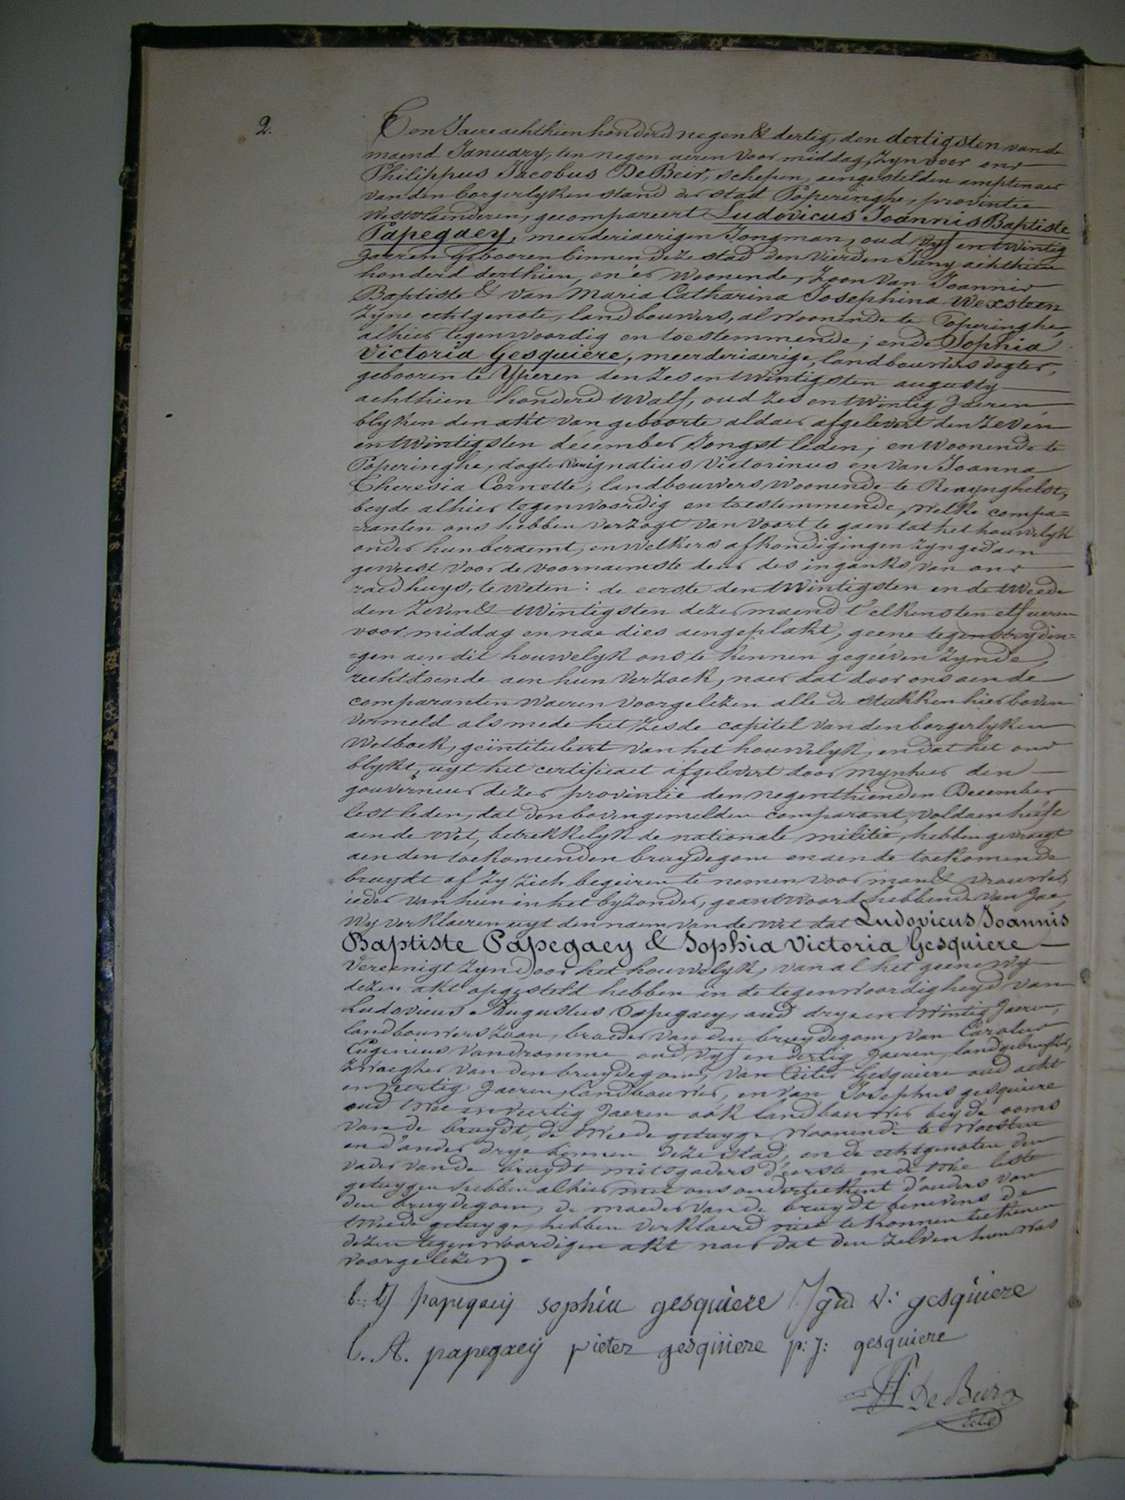 2.
Den Jaere achthien honderd negen & dertig, den dertigsten van de
maend January, ten negen ueren voor middag, zyn voor ons
Philippus Jacobus De Beir, schepen, aengestelden amptenaer
van den borgerlyken stand der stad Poperinghe, provintie
Westvlaenderen, gecompareert Ludovicus Joannis Baptiste
Papegaey, meerderiaerigen Jongman, oud vyf en twintig
Jaeren gebooren binnen deze stad den vierden Juny achthien
honderd derthien, en er woonende, Zoon van Joannis
Baptiste & van Maria Catharina Josephina Wexsteen
zyne echtgenote, landbouwers, al woonende te Poperinghe
alhier tegenwoordig en toestemmende; ende Sophia
Victoria Gesquiere, meerderiaerige landbouwers dogter,
gebooren te Yperen den zes en twintigsten augusty
achthien honderd twalf, oud zes en twintig Jaeren
blyken den akt van geboorte aldaer afgelevert den zeven
en twintigsten december Jongst leden; en woonende te
Poperinghe, dogter van ignatius Victorinus en van Joanna
Theresia Cornette, landbouwers woonende te Reninghelst,
beyde alhier tegenwoordig en toestemmende, welke compa=
=ranten ons hebben verzogt van voort te gaen tot het houwelyk
onder hun beraemt, en welkers afkondigingen zyn gedaen
geweest voor de voornaemste deur des inganks van ons
raedhuys, te weten: de eerste den twintigsten en de tweede
den zeven & twintigsten dezer maend t'elkensten elf ueren
voormiddag en nae dies aengeplakt, geene tegenstryden=
=gen aen dit houwelyk ons te kennen gegeéven zynde,
rechtdoende aen hun verzoek, naer dat door ons aen de
comparanten waeren voorgelezen alle de stukken hier boven
vermeld als mede het zesde capitel van den borgerlyken
Wetboek, geïntituleert van het houwelyk, en dat het ons
blykt, uyt het certificaet afgelevert door mynheer den
gouverneur dezer provintie den negenthienden December
lest leden, dat den bovengemelden comparant voldaen heéft
aen de wet, betrekkelyk de nationale militie, hebben gevraegt
aen den toekomenden bruydegom en aen de toekomende
bruydt of zy zich begeiren te nemen voor man & vrouwe,
ieder van hun in het byzonder, geantwoord hebbende van Jae,
Wy verklaeren uyt den naem van de wet dat Ludovicus Joannis
Baptiste Papegaey & Sophia Victoria Gesquiere
vereenigt zyn door het houwelyk, van al het geene wy
dezen akt opgesteld hebben in de tegenwoordigheyd van
Ludovicus Augustus Papegaey, oud drye en twintig Jaeren,
landbouwers zoon, broeder van den bruydegom, van Carolus
Eugenius Vandromme oud vyf en dertig Jaeren, landgebruyker,
zwaegher van den bruydegom, van Pieter Gesquiere oud acht
en veertig Jaeren, landbouwer, en van Josephus gesquiere
oud twee en veertig Jaeren oók landbouwer beyde ooms
van de bruydt, de tweede getuyge woonende te Woesten
en d'ander drye binnen deze stad, en de echtgenoten den
vader van de bruydt mitsgaders d'eerste en de twee leste
getuygen hebben alhier met ons onderteekent d'ouders van
den bruydegom, de moeder van de bruydt benevens de
tweede getuyge, hebben verklaerd niet te konnen teekenen
dezen tegenwoordigen akt naer dat den zelven hun was
voorgelezen.
papegaeÿ sophia gesquiere V: gesquiere
L. A. papegaeÿ pieter gesquiere p: j: gesquiere
De Beir